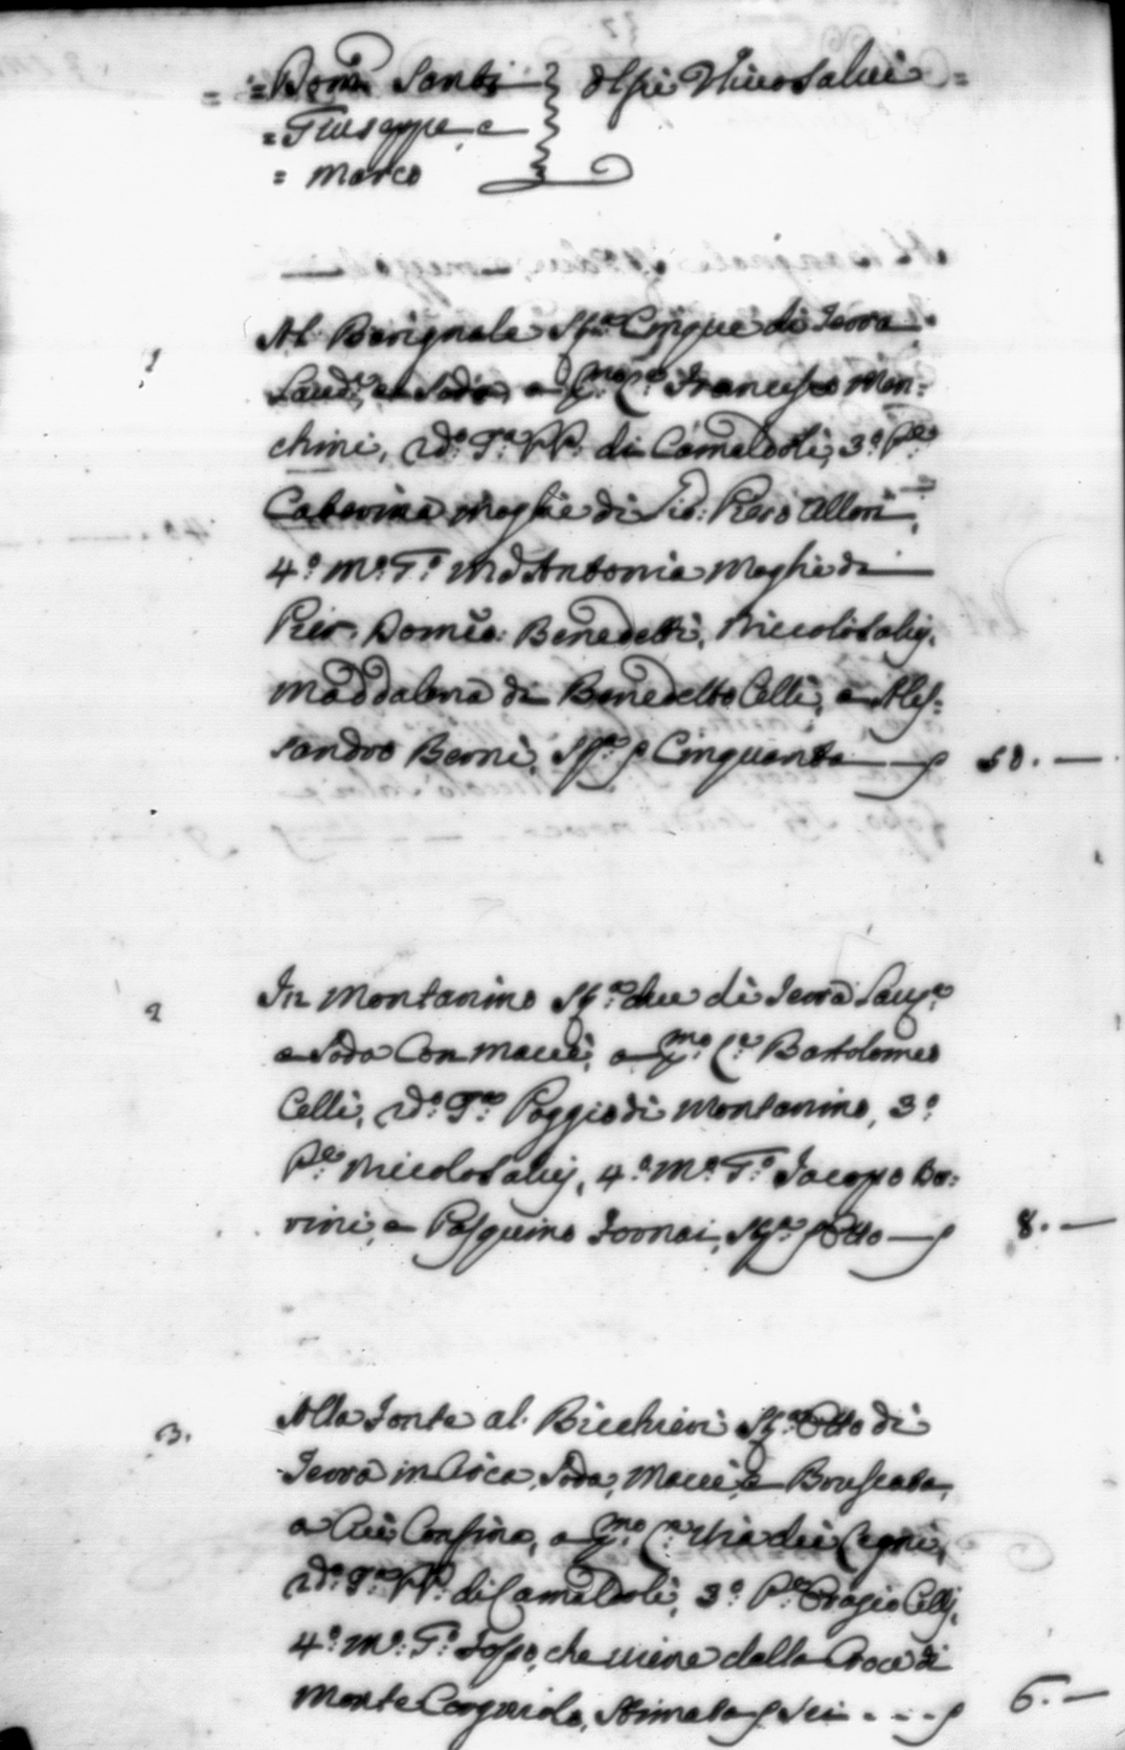 = Dom.co Santi
= Giuseppe, e
= Marco
Al Barignale St.a Cinque di Terra
Laud.a, e Soda, a P.mo C.ne Francesco Mon=
chini, 2do T.a PP. di Camaldoli, 3.o P.e
Caterina Moglie di Gio: Piero Allori,
4.o M.o T.o Md Antonia Moglie di
Pier Domco: Benedetti, Niccolò Salvj,
Maddalena di Benedetto Celli, e Ales=
sandro Berni, St.a Cinquanta 50. —
2 In Montanino St.a due di Terra Lau.a
e Soda Con Macei, a P.mo C.e Bartolomeo
Celli, 2do T.a Poggio di Montanino, 3.o
P.e Niccolo Salvj, 4.o M.o T.o Jacopo Bo=
rini, e Pasquino Fornai, St.a Otto 8. —
3. Alla Fonte al Bicchieri St.a Otto di
Terra in Circa, Soda, Macei, e Bruscata,
a Cui Confina, a P.mo C.e Via dei Cegni,
2do T.a PP. di Camaldoli, 3.o P.e Orazio Cellj,
4.o M.o T.o Fosso, che viene dalla Croce di
Monte Corgnolo, Stimata Sei 6. —